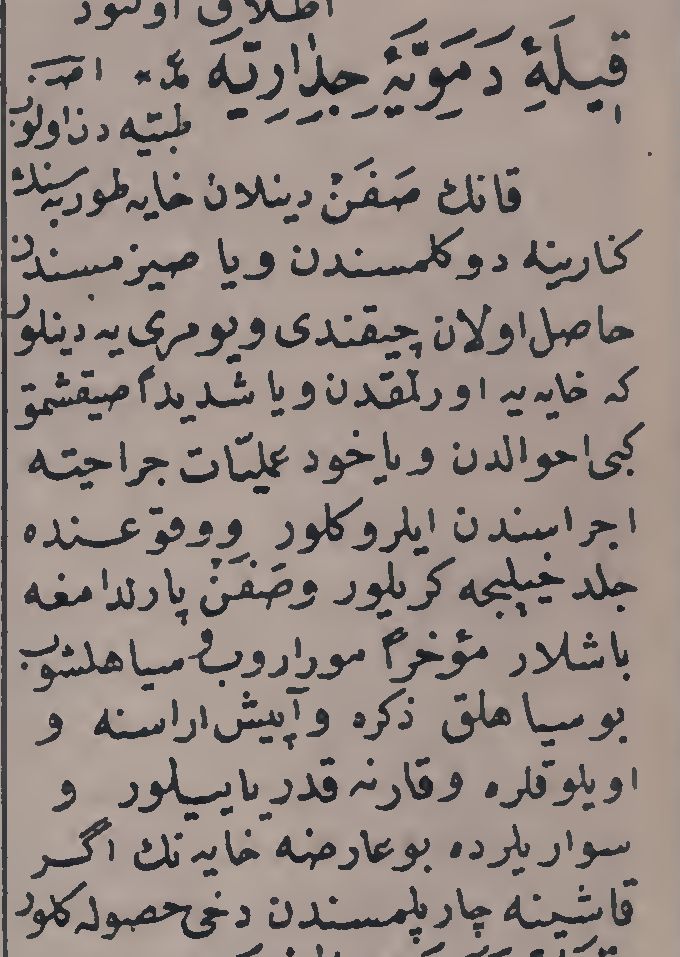 اطلاق اولنور
قِیلَهٔ دَمَوِیَّهٔ جِدَارِیَّه
طبیه دن اولوب
قانك صَفَنْ دینلان خایه طوربه سنك
كنارینه دوكلمسندن ویا صیزمسندن
حاصل اولان چیقندی و یومری یه دینلور
كه خایه یه اورلمقدن ویا شدیداً صیقشمق
كبی احوالدن ویاخود عملیّات جراحیّه
اجراسندن ایلروكلور ووقوعنده
جلد خیلیجه كریلور وصَفَنْ پارلدامغه
باشلار مؤخراً موراروب و سیاهلشوب
بو سیاهلق ذكره و آپیش اراسنه و
اویلوقلره وقارنه قدر یاییلور و
سواریلرده بوعارضه خایه نك اگر
قاشینه چارپلمسندن دخی حصوله كلور